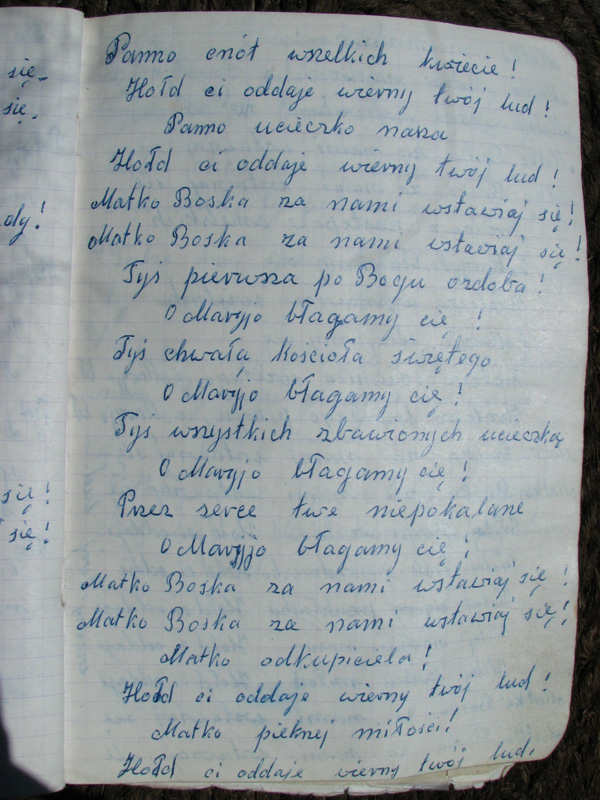 się.
się.
ody!
się!
się!
Panno cnót wszelkich kwiecie!
Hołd ci oddaje wierny twój lud!
Panno ucieczko nasza
Hołd ci oddaje wierny twój lud!
Matko Boska za nami wstawiaj się!
Matko Boska za nami wstawiaj się!
Tyś pierwsza po Bogu ozdoba!
O Maryjo błagamy cię!
Tyś chwałą Kościoła świętego
O Maryjo błagamy cię!
Tyś wszystkich zbawionych ucieczką
O Maryjo błagamy cię!
Przez serce twe niepokalane
O Maryjo błagamy cię!
Matko Boska za nami wstawiaj się!
Matko Boska za nami wstawiaj się!
Matko odkupiciela!
Hołd ci oddaje wierny twój lud!
Matko pięknej miłości!
Hołd ci oddaje wierny twój lud.